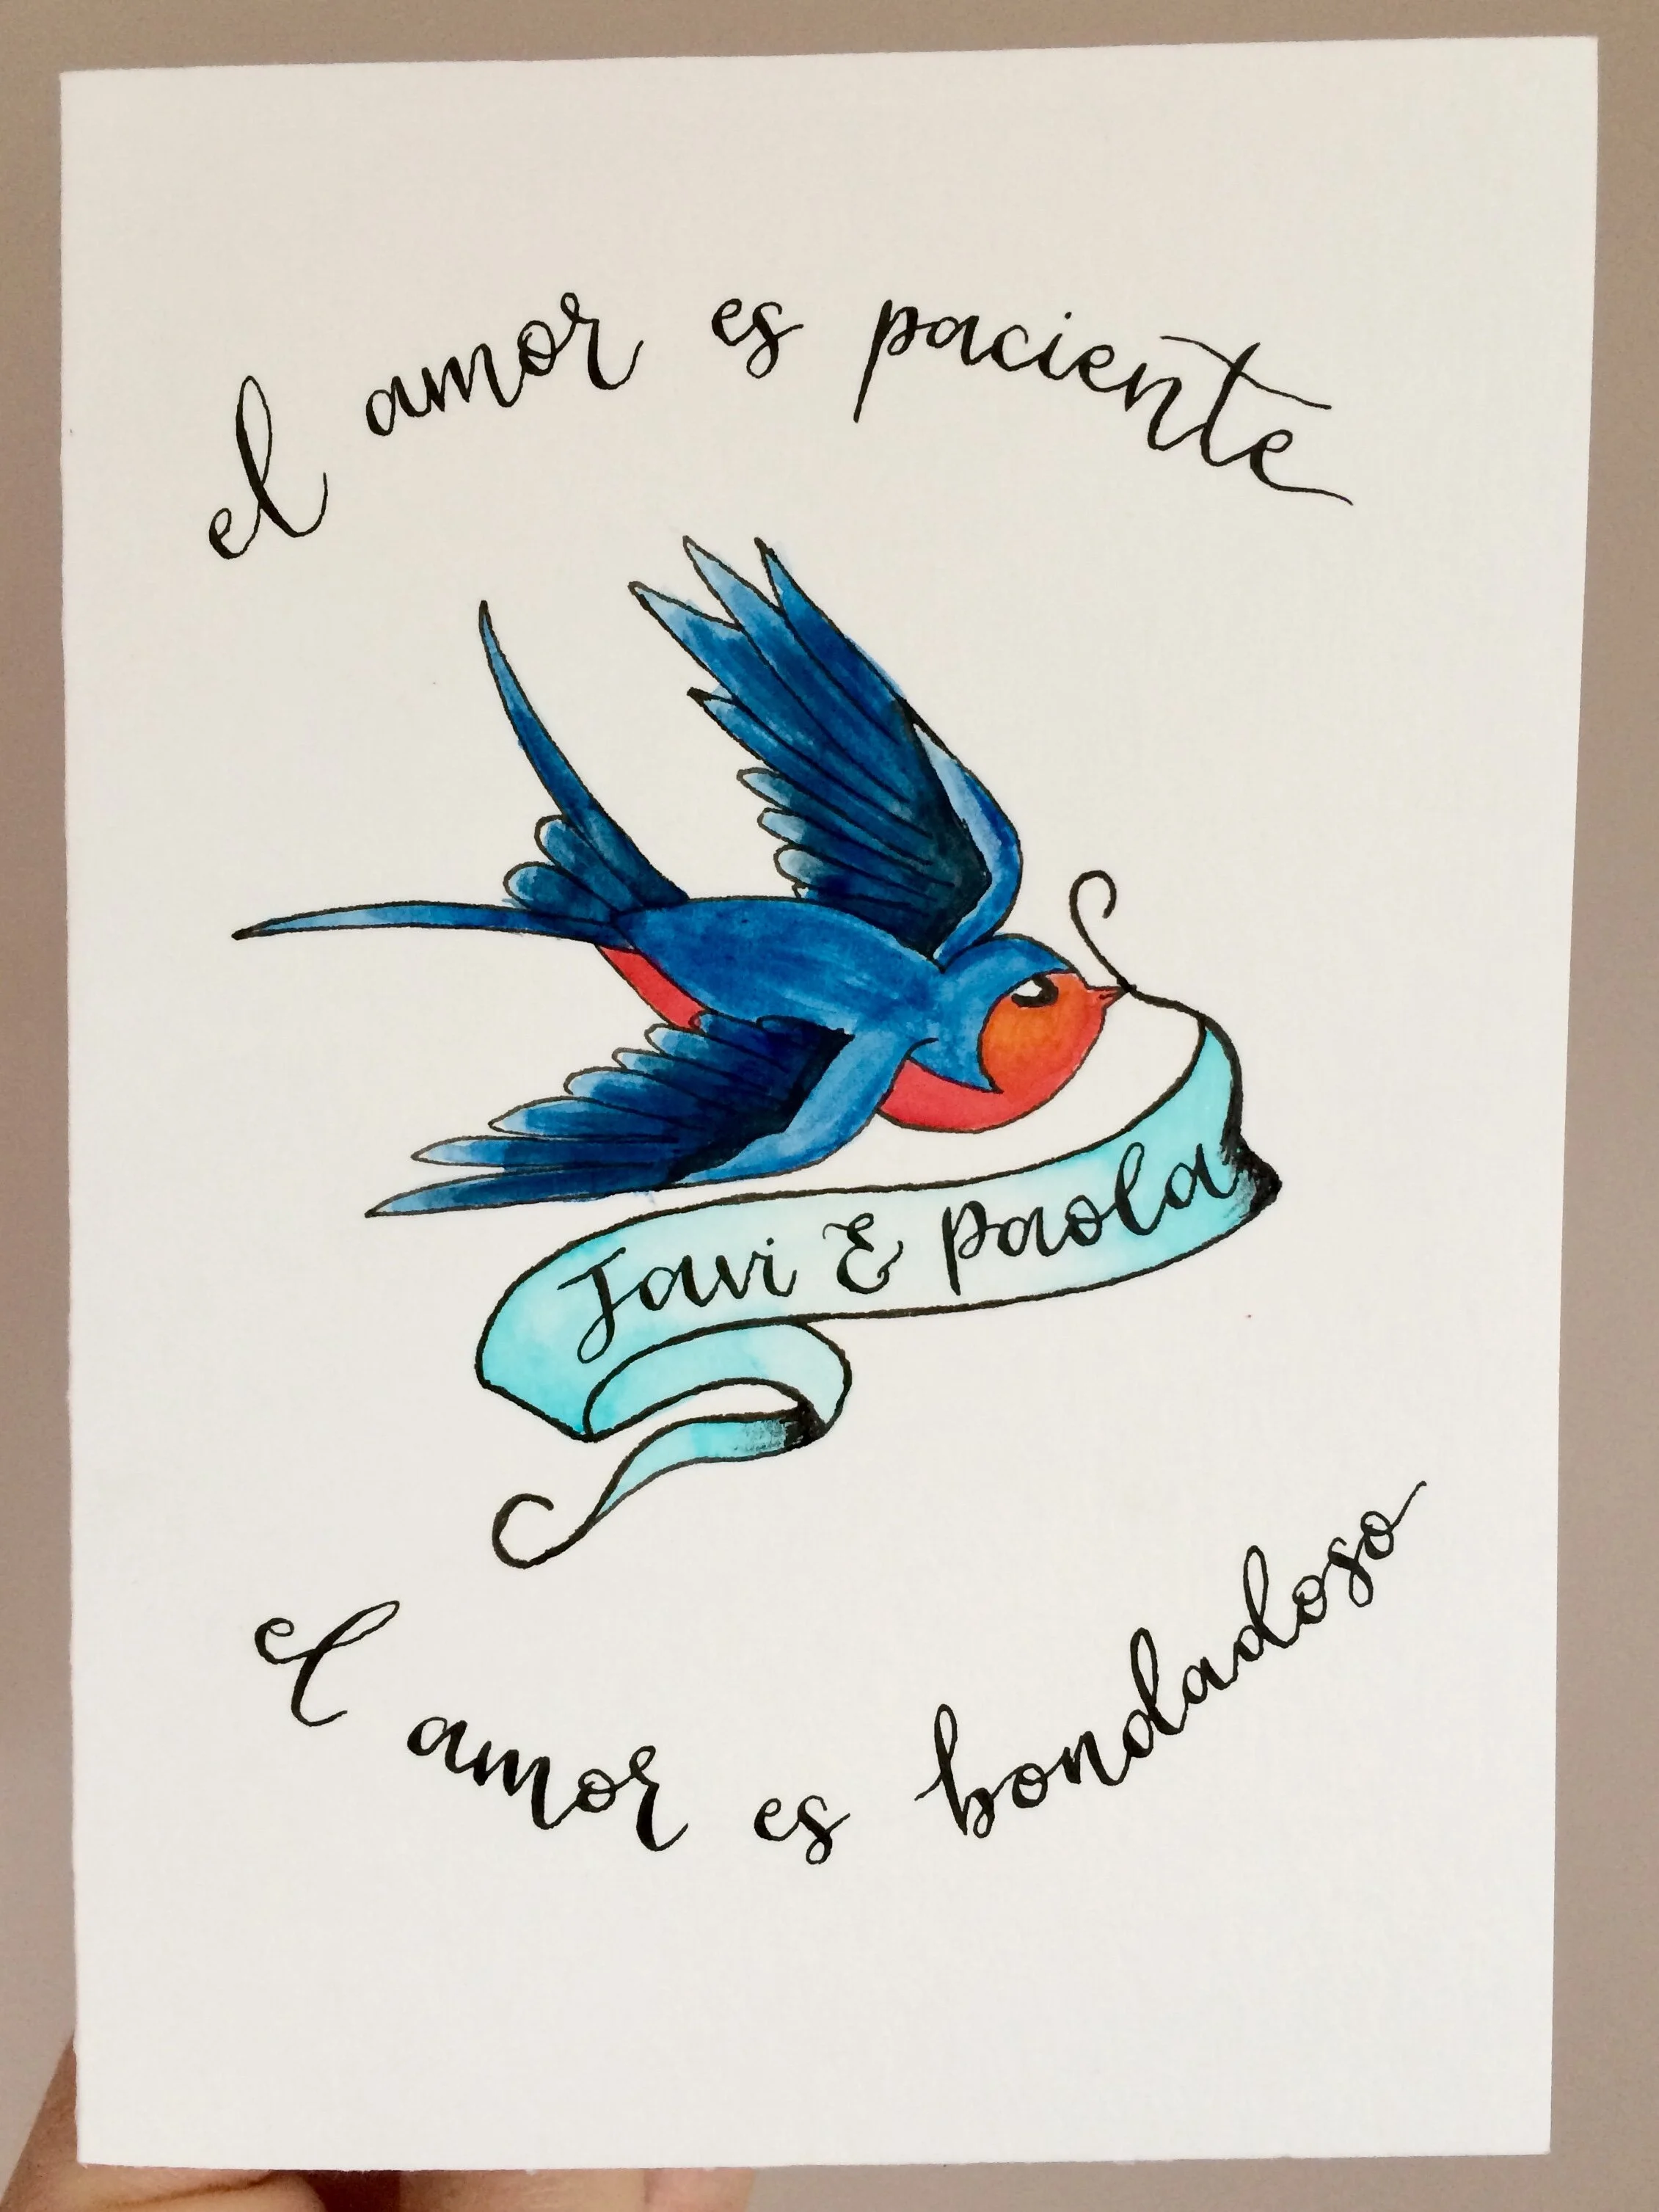 el amor es paciente
Javi & Paola
El amor es bondadoso